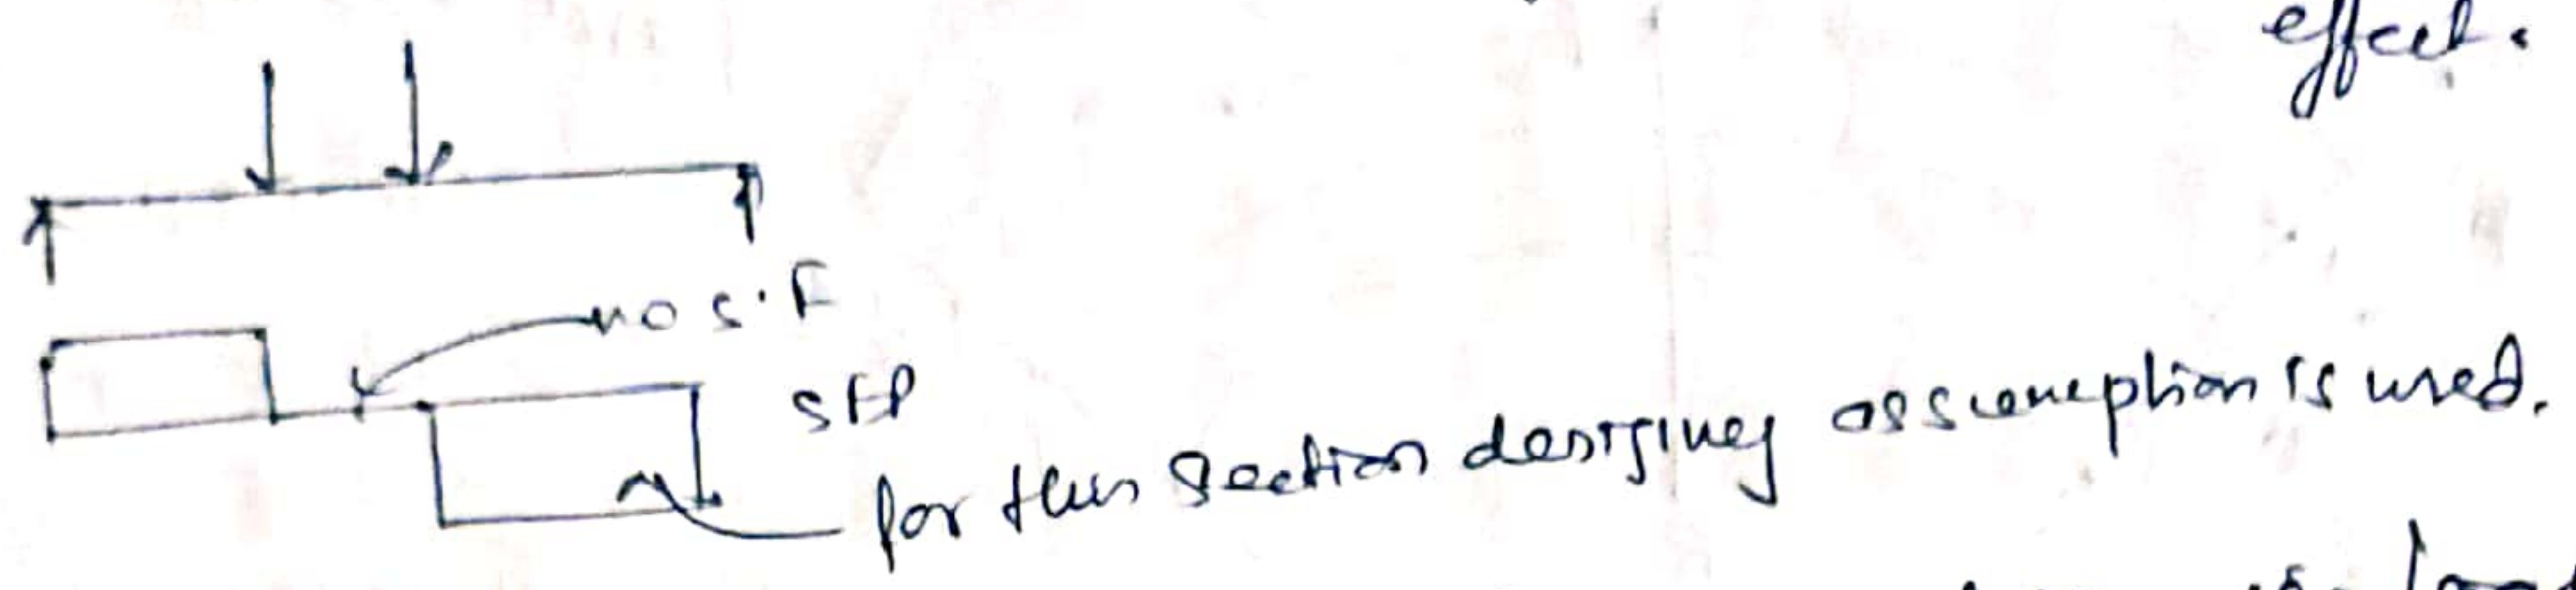 effect.
no S.F
SFD
for this section designing assumption is used.